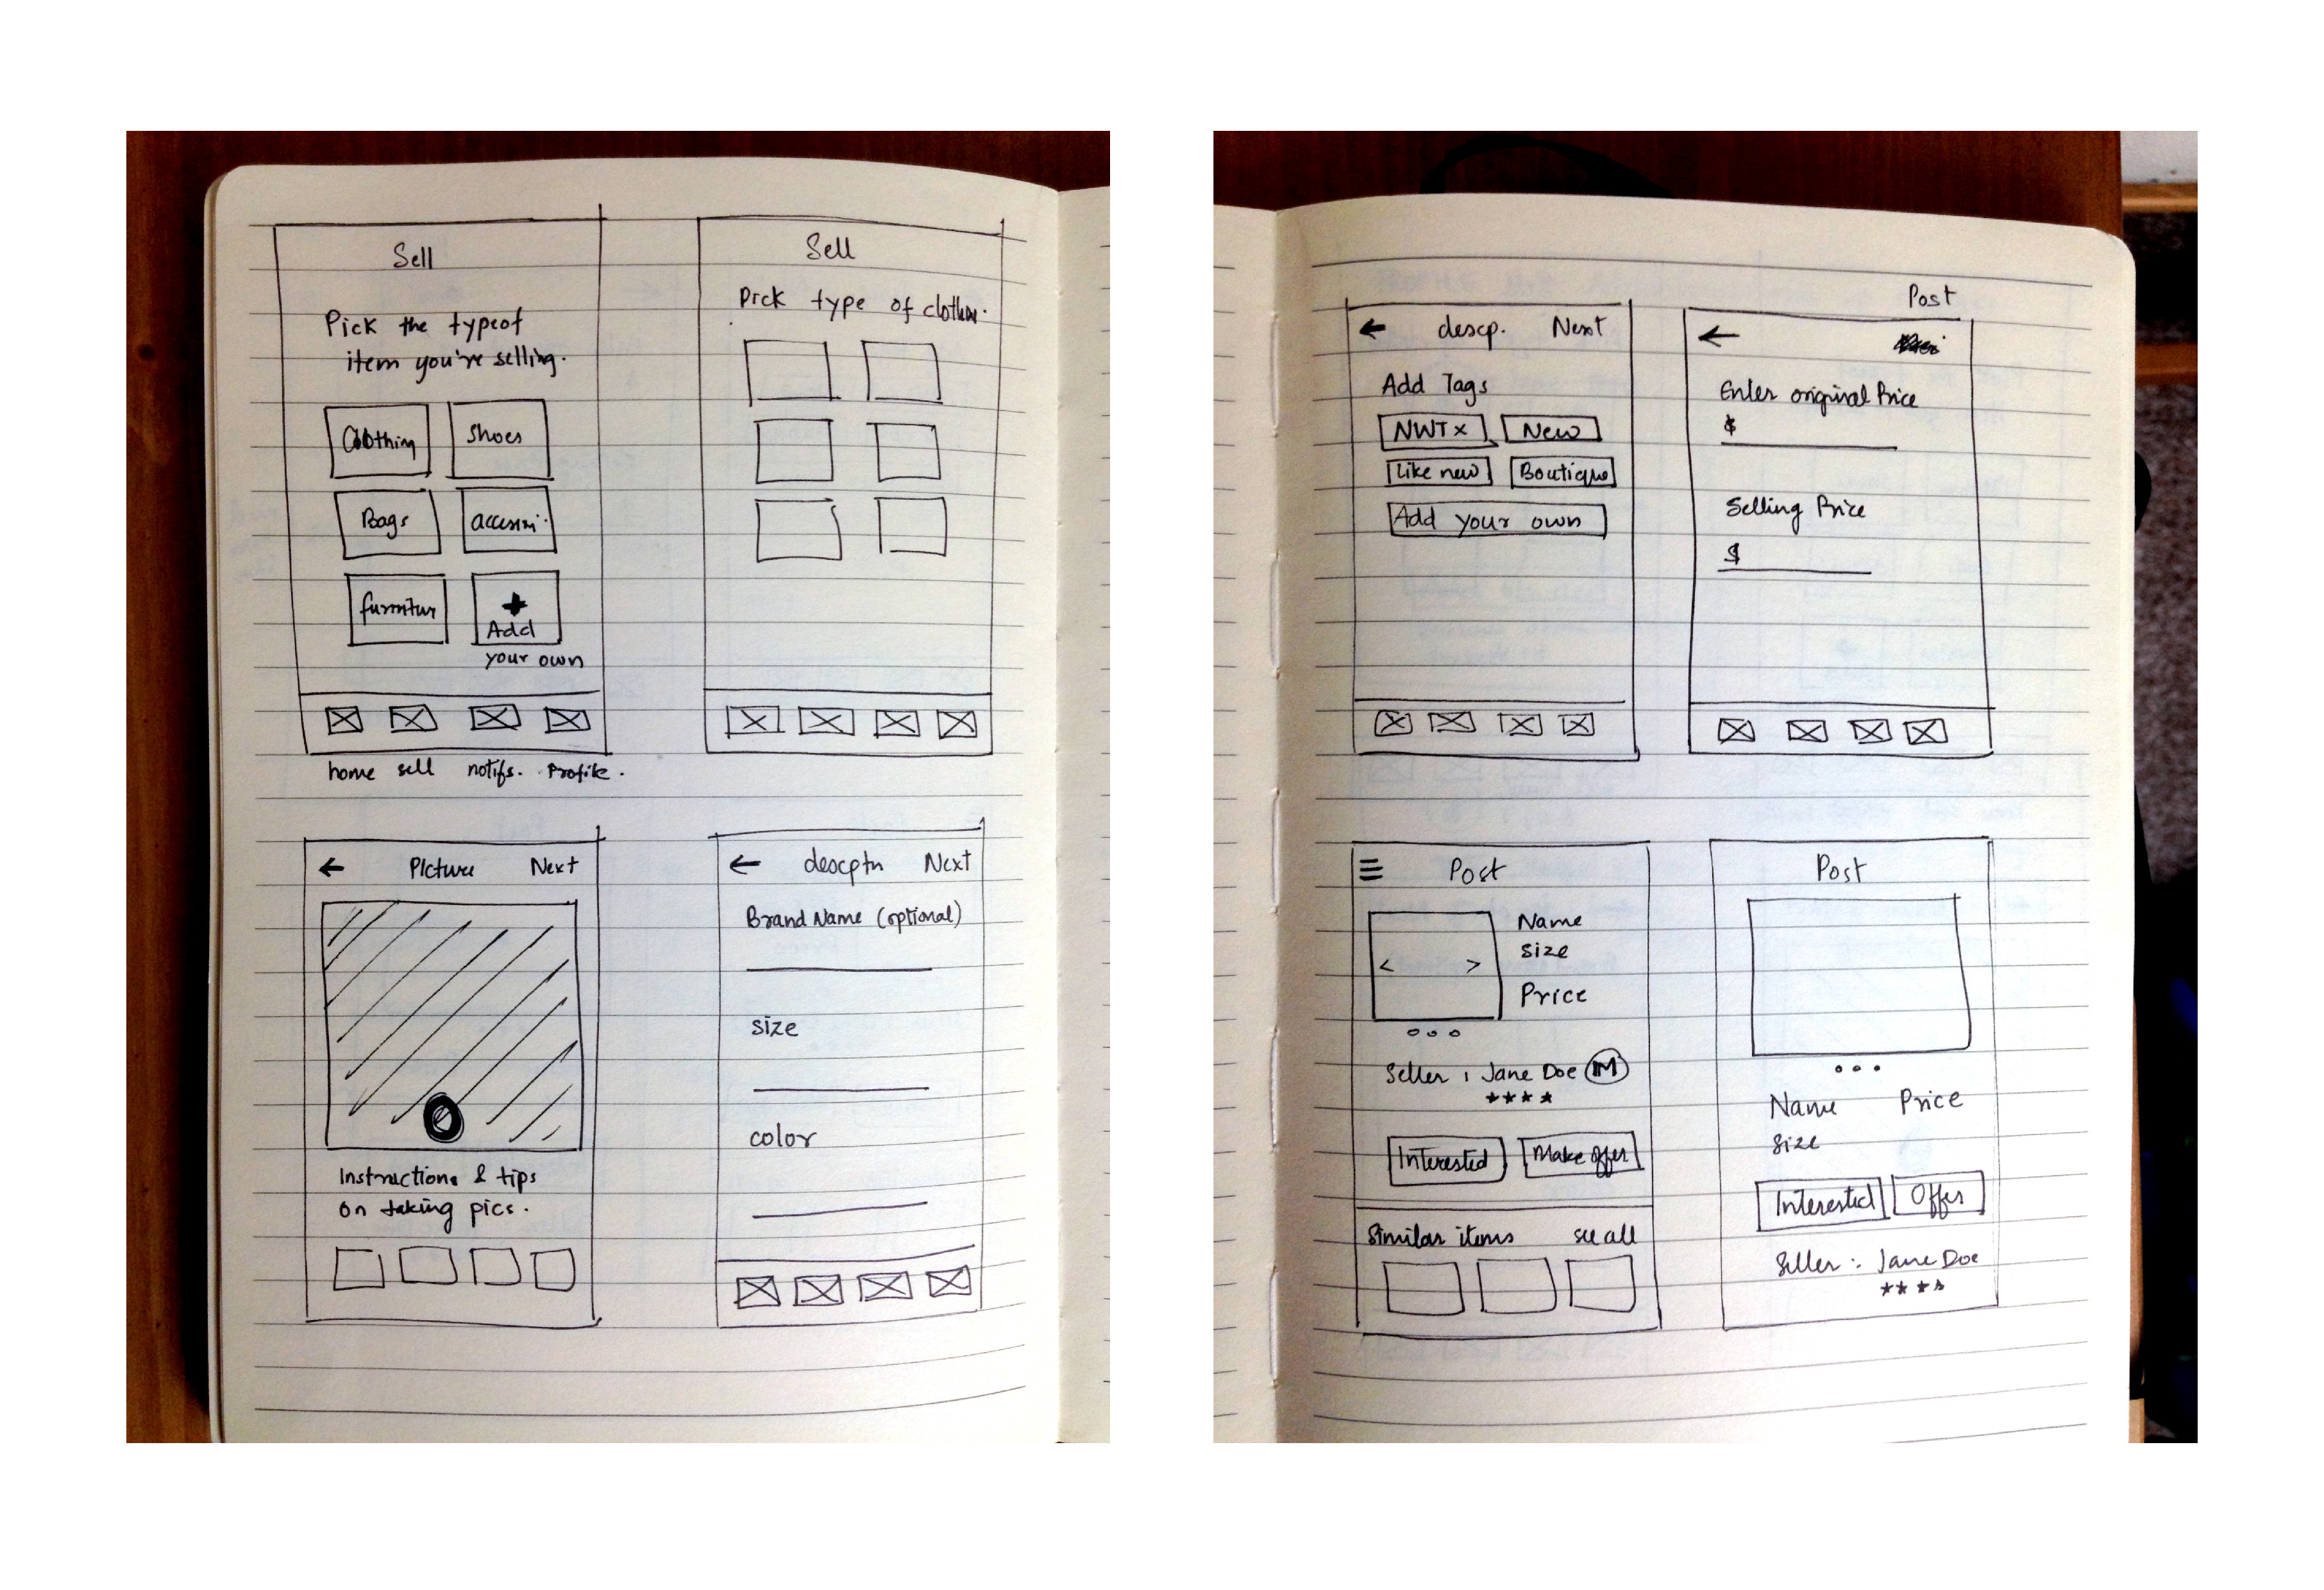 Sell
Pick the type of
item you're selling.
Clothing
Shoes
Bags
furnitur
+
Add
your own
home sell notifs. Profile.
Sell
Pick type of
Picture Next
Instructions & tips
on taking pics.
descptn Next
Brand Name (optional)
size
color
descp. Next
Add Tags
NWT x New
Like new Boutique
Add your own
Post
Enter original Price
$
Selling Price
$
Post
Name
size
Price
< >
Seller : Jane Doe M
Interested Make offer
Similar items see all
Post
Name Price
size
Interested Offer
Seller : Jane Doe